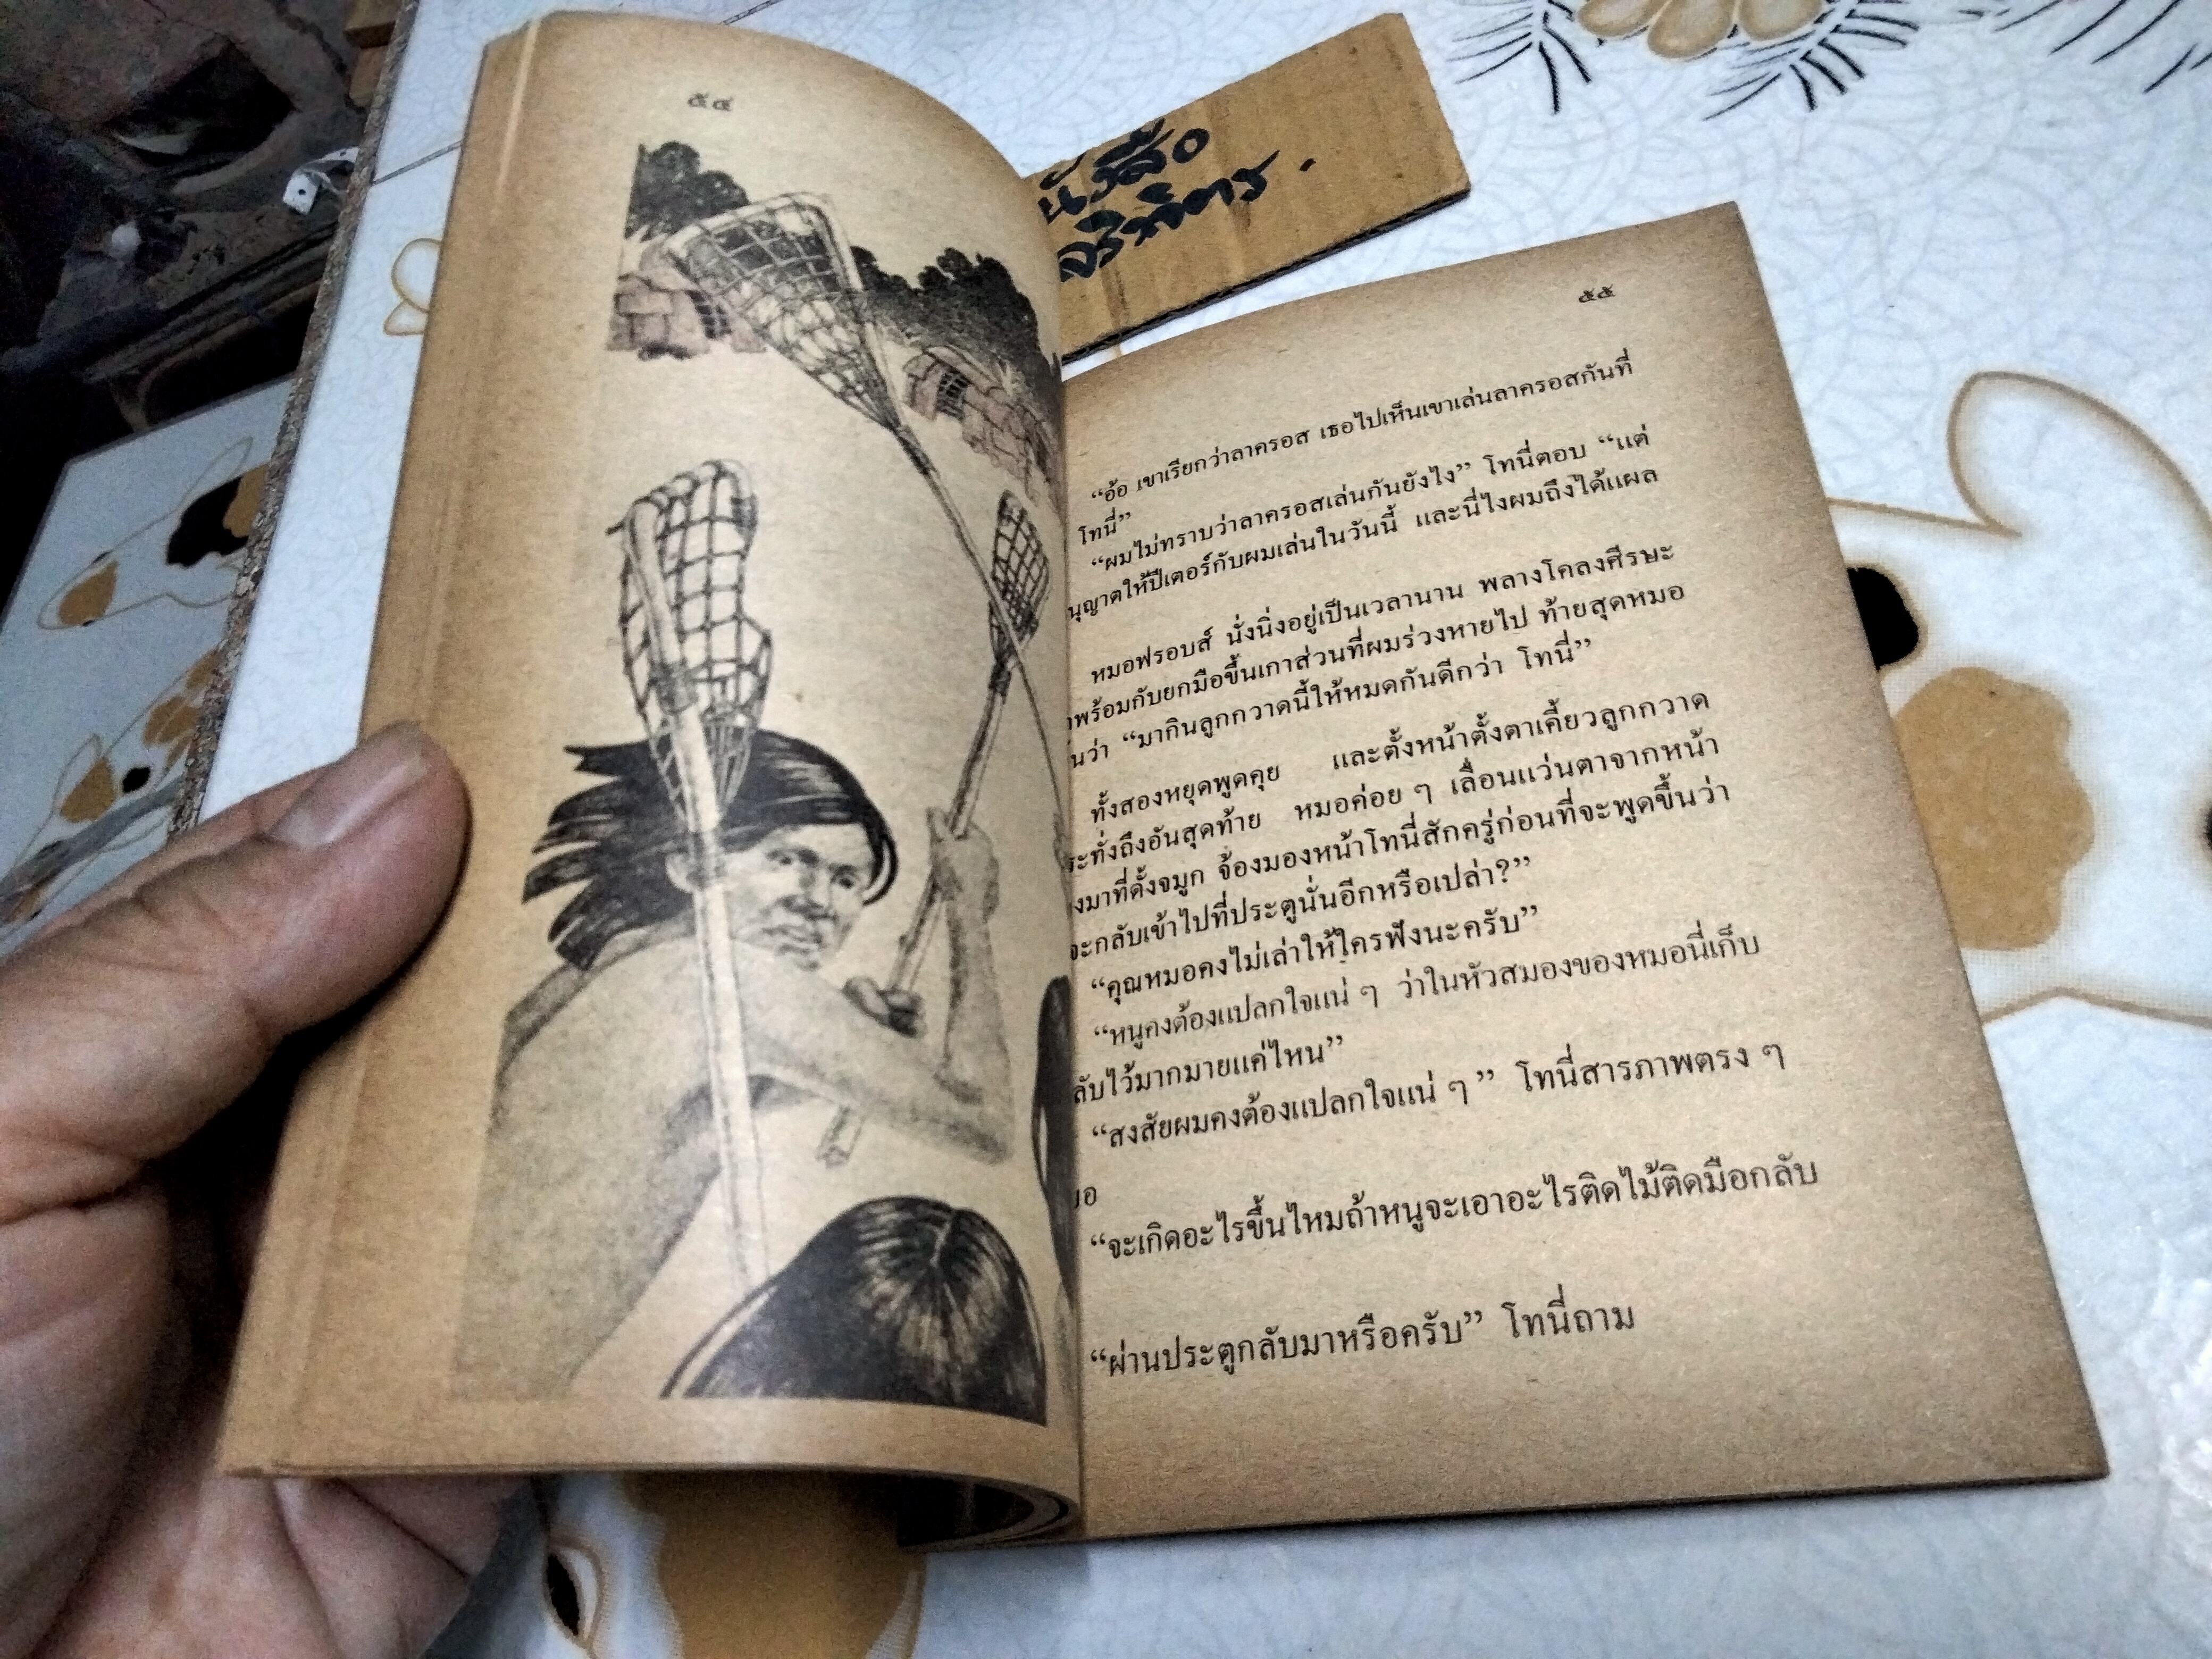 ๕๔
หนังสือ
๕๕
“อ้อ เขาเรียกว่าลาครอส เธอไปเห็นเขาเล่นลาครอสกันที่
โทนี่”
“ผมไม่ทราบว่าลาครอสเล่นกันยังไง” โทนี่ตอบ “แต่
นุญาตให้ปีเตอร์กับผมเล่นในวันนี้ และนี่ไงผมถึงได้แผล
หมอฟรอบส์ นั่งนิ่งอยู่เป็นเวลานาน พลางโคลงศีรษะ
พร้อมกับยกมือขึ้นเกาส่วนที่ผมร่วงหายไป ท้ายสุดหมอ
นว่า “มากินลูกกวาดนี้ให้หมดกันดีกว่า โทนี่”
ทั้งสองหยุดพูดคุย และตั้งหน้าตั้งตาเคี้ยวลูกกวาด
ระทั่งถึงอันสุดท้าย หมอค่อย ๆ เลื่อนแว่นตาจากหน้า
งมาที่ดั้งจมูก จ้องมองหน้าโทนี่สักครู่ก่อนที่จะพูดขึ้นว่า
จะกลับเข้าไปที่ประตูนั่นอีกหรือเปล่า?”
“คุณหมอคงไม่เล่าให้ใครฟังนะครับ”
“หนูคงต้องแปลกใจแน่ ๆ ว่าในหัวสมองของหมอนี่เก็บ
ลับไว้มากมายแค่ไหน”
“สงสัยผมคงต้องแปลกใจแน่ ๆ” โทนี่สารภาพตรง ๆ
มอ
“จะเกิดอะไรขึ้นไหมถ้าหนูจะเอาอะไรติดไม้ติดมือกลับ
“ผ่านประตูกลับมาหรือครับ” โทนี่ถาม